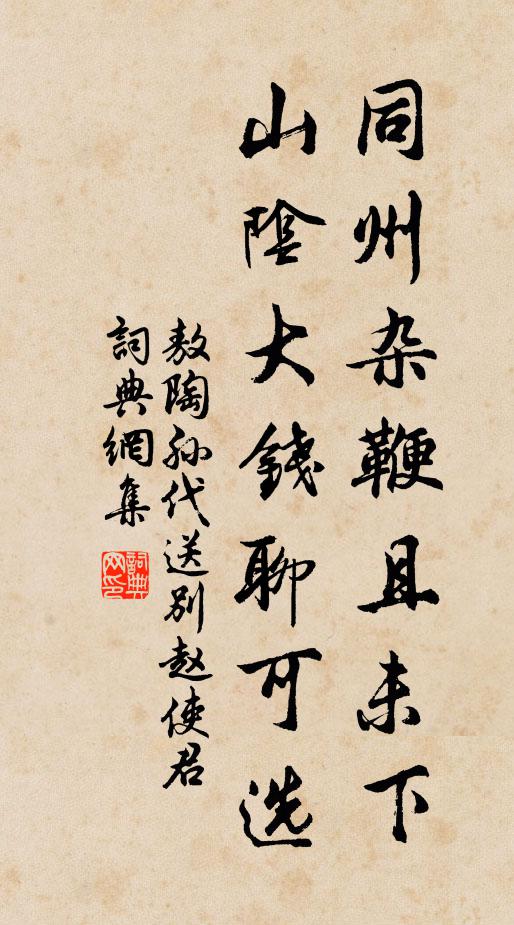 同州杂鞭且未下
山陰大錢聊可选
敖陶孙代送别赵使君
詞典網集
詞典网印